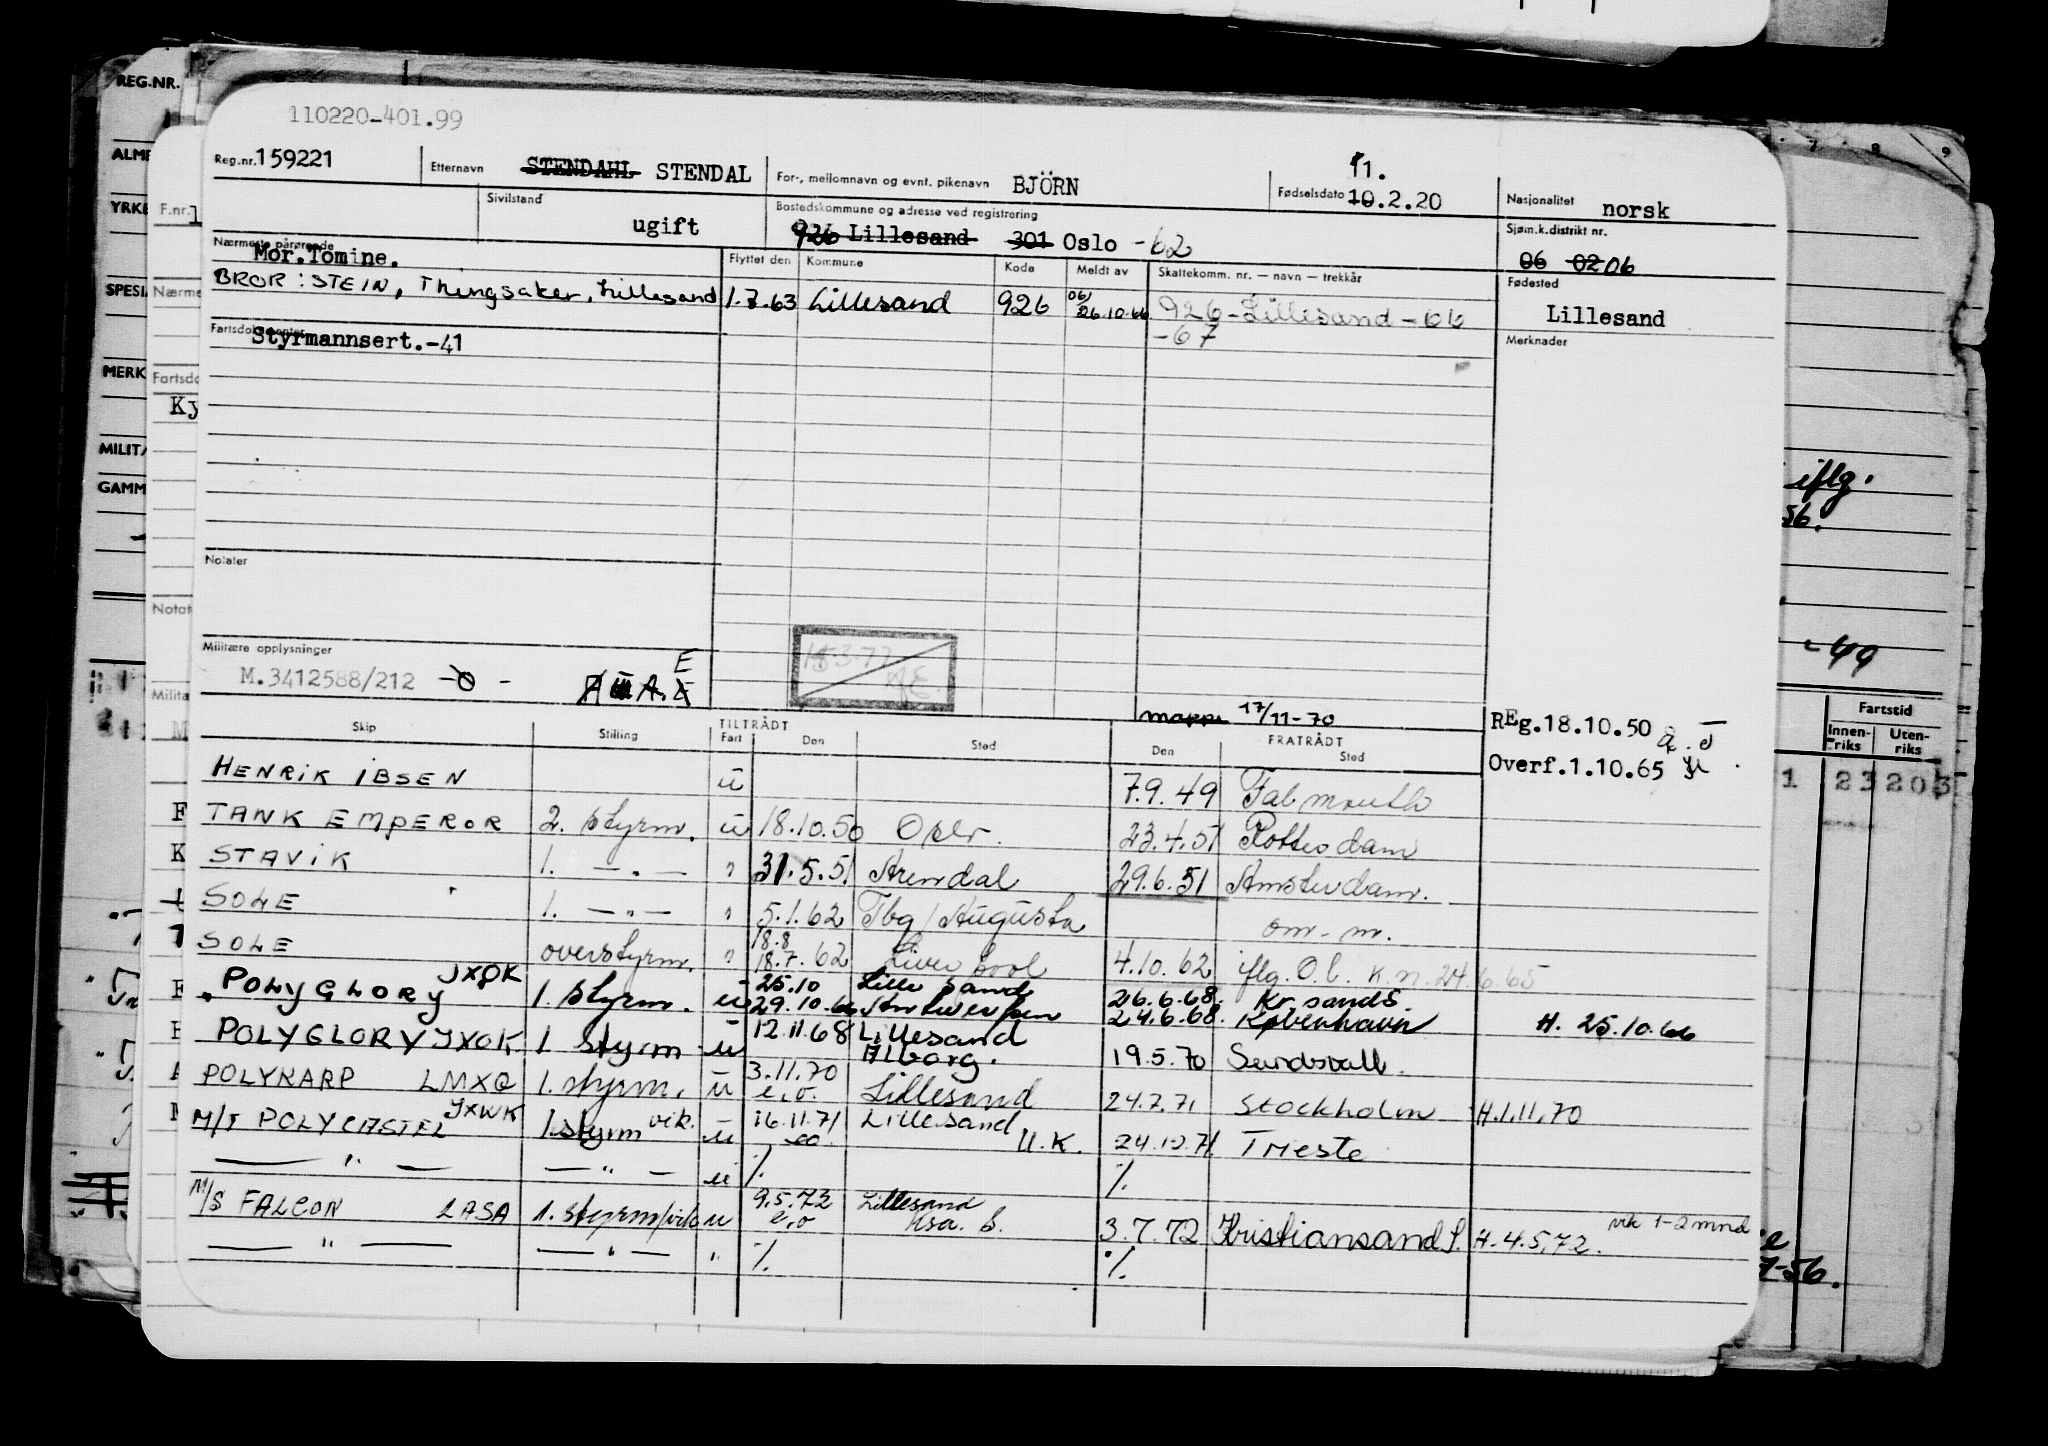 110220-401.99
Reg.nr. 159221 Etternavn STENDAHL STENDAL For-, mellomnavn og evnt. pikenavn BJÖRN Fødselsdato 10.2.20 11. Nasjonalitet norsk
F.nr. 1 Sivilstand ugift Bostedskommune og adresse ved registrering 926 Lillesand 301 Oslo -62 Sjøm.k.distrikt nr. 06 02 06
Nærmeste pårørende Mor. Tomine. Flyttet den Kommune Kode Meldt av Skattekomm. nr. — navn — trekkår Fødested Lillesand
BROR : STEIN, Thingsaker, Lillesand 1.7.63 Lillesand 926 06/ 26.10.66 926-Lillesand-66
-67
Fartsdokumenter Styrmannsert.-41 Merknader
Notater
Militære opplysninger
M.3412588/212
15.3.77
mappe 17/11-70
REg.18.10.50
Overf.1.10.65
Skip Stilling TILTRÅDT Fart Den Sted FRATRÅDT Den Sted
HENRIK IBSEN u 7.9.49 Falmouth
TANK EMPEROR 2. styrm. u 18.10.50 Oslo. 23.4.51 Rotterdam
STAVIK 1. — " — " 31.5.51 Arendal 29.6.51 Amsterdam.
SOLE 1. — " — " 5.1.62 Tbg/Augusta om. m.
SOLE overstyrm. " 18.8 18.7.62 Liverpool 4.10.62 iflg. O.b. K.n. 24.6.65
POLYGLORY JXOK 1. styrm. u 25.10 29.10.66 Lillesand Antwerpen 26.6.68. 24.6.68. Kr.sand S. København H. 25.10.66
POLYGLORY JXOK 1 styrm u 12.11.68 Lillesand Ålborg. 19.5.70 Sundsvall.
POLYKARP LMXQ 1. styrm. u 3.11.70 e.o. Lillesand 24.7.71 Stockholm H.1.11.70
M/T POLYCASTEL JXWK 1.styrm vik. u 16.11.71 eo Lillesand U.K. 24.12.71 Trieste
— " — — " — u %. %.
M/S FALCON LASA 1. styrm/vik u 9.5.72 e.o Lillesand Krs. S. 3.7.72 Kristiansand S. H.4.5.72. vik 1-2 mnd
— " — — " — " %. %.
REG.NR.
YRKE
MERK
MILITÆ
GAMM
Ky
iflg.
56.
-49
Fartstid
Innenriks Utenriks
1 23 203
7-56.